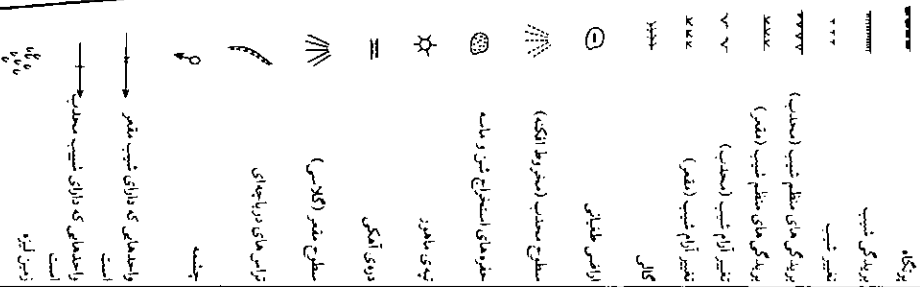 پرتگاه
بریدگی شیب
تغییر شیب
بریدگی های منظم شیب (محدب)
بریدگی های منظم شیب (مقعر)
تغییر آرام شیب (محدب)
تغییر آرام شیب (مقعر)
گالی
اراضی طغیانی
سطوح محدب (مخروط افکنه)
حفره های استخراج شن و ماسه
تپه‌ی ماهور
دره‌ی آهکی
سطوح مقعر (گلاسی)
تراس های دریاچه‌ای
چشمه
واحدهایی که دارای شیب مقعر
است
واحدهایی که دارای شیب محدب
است
زمین لیزه